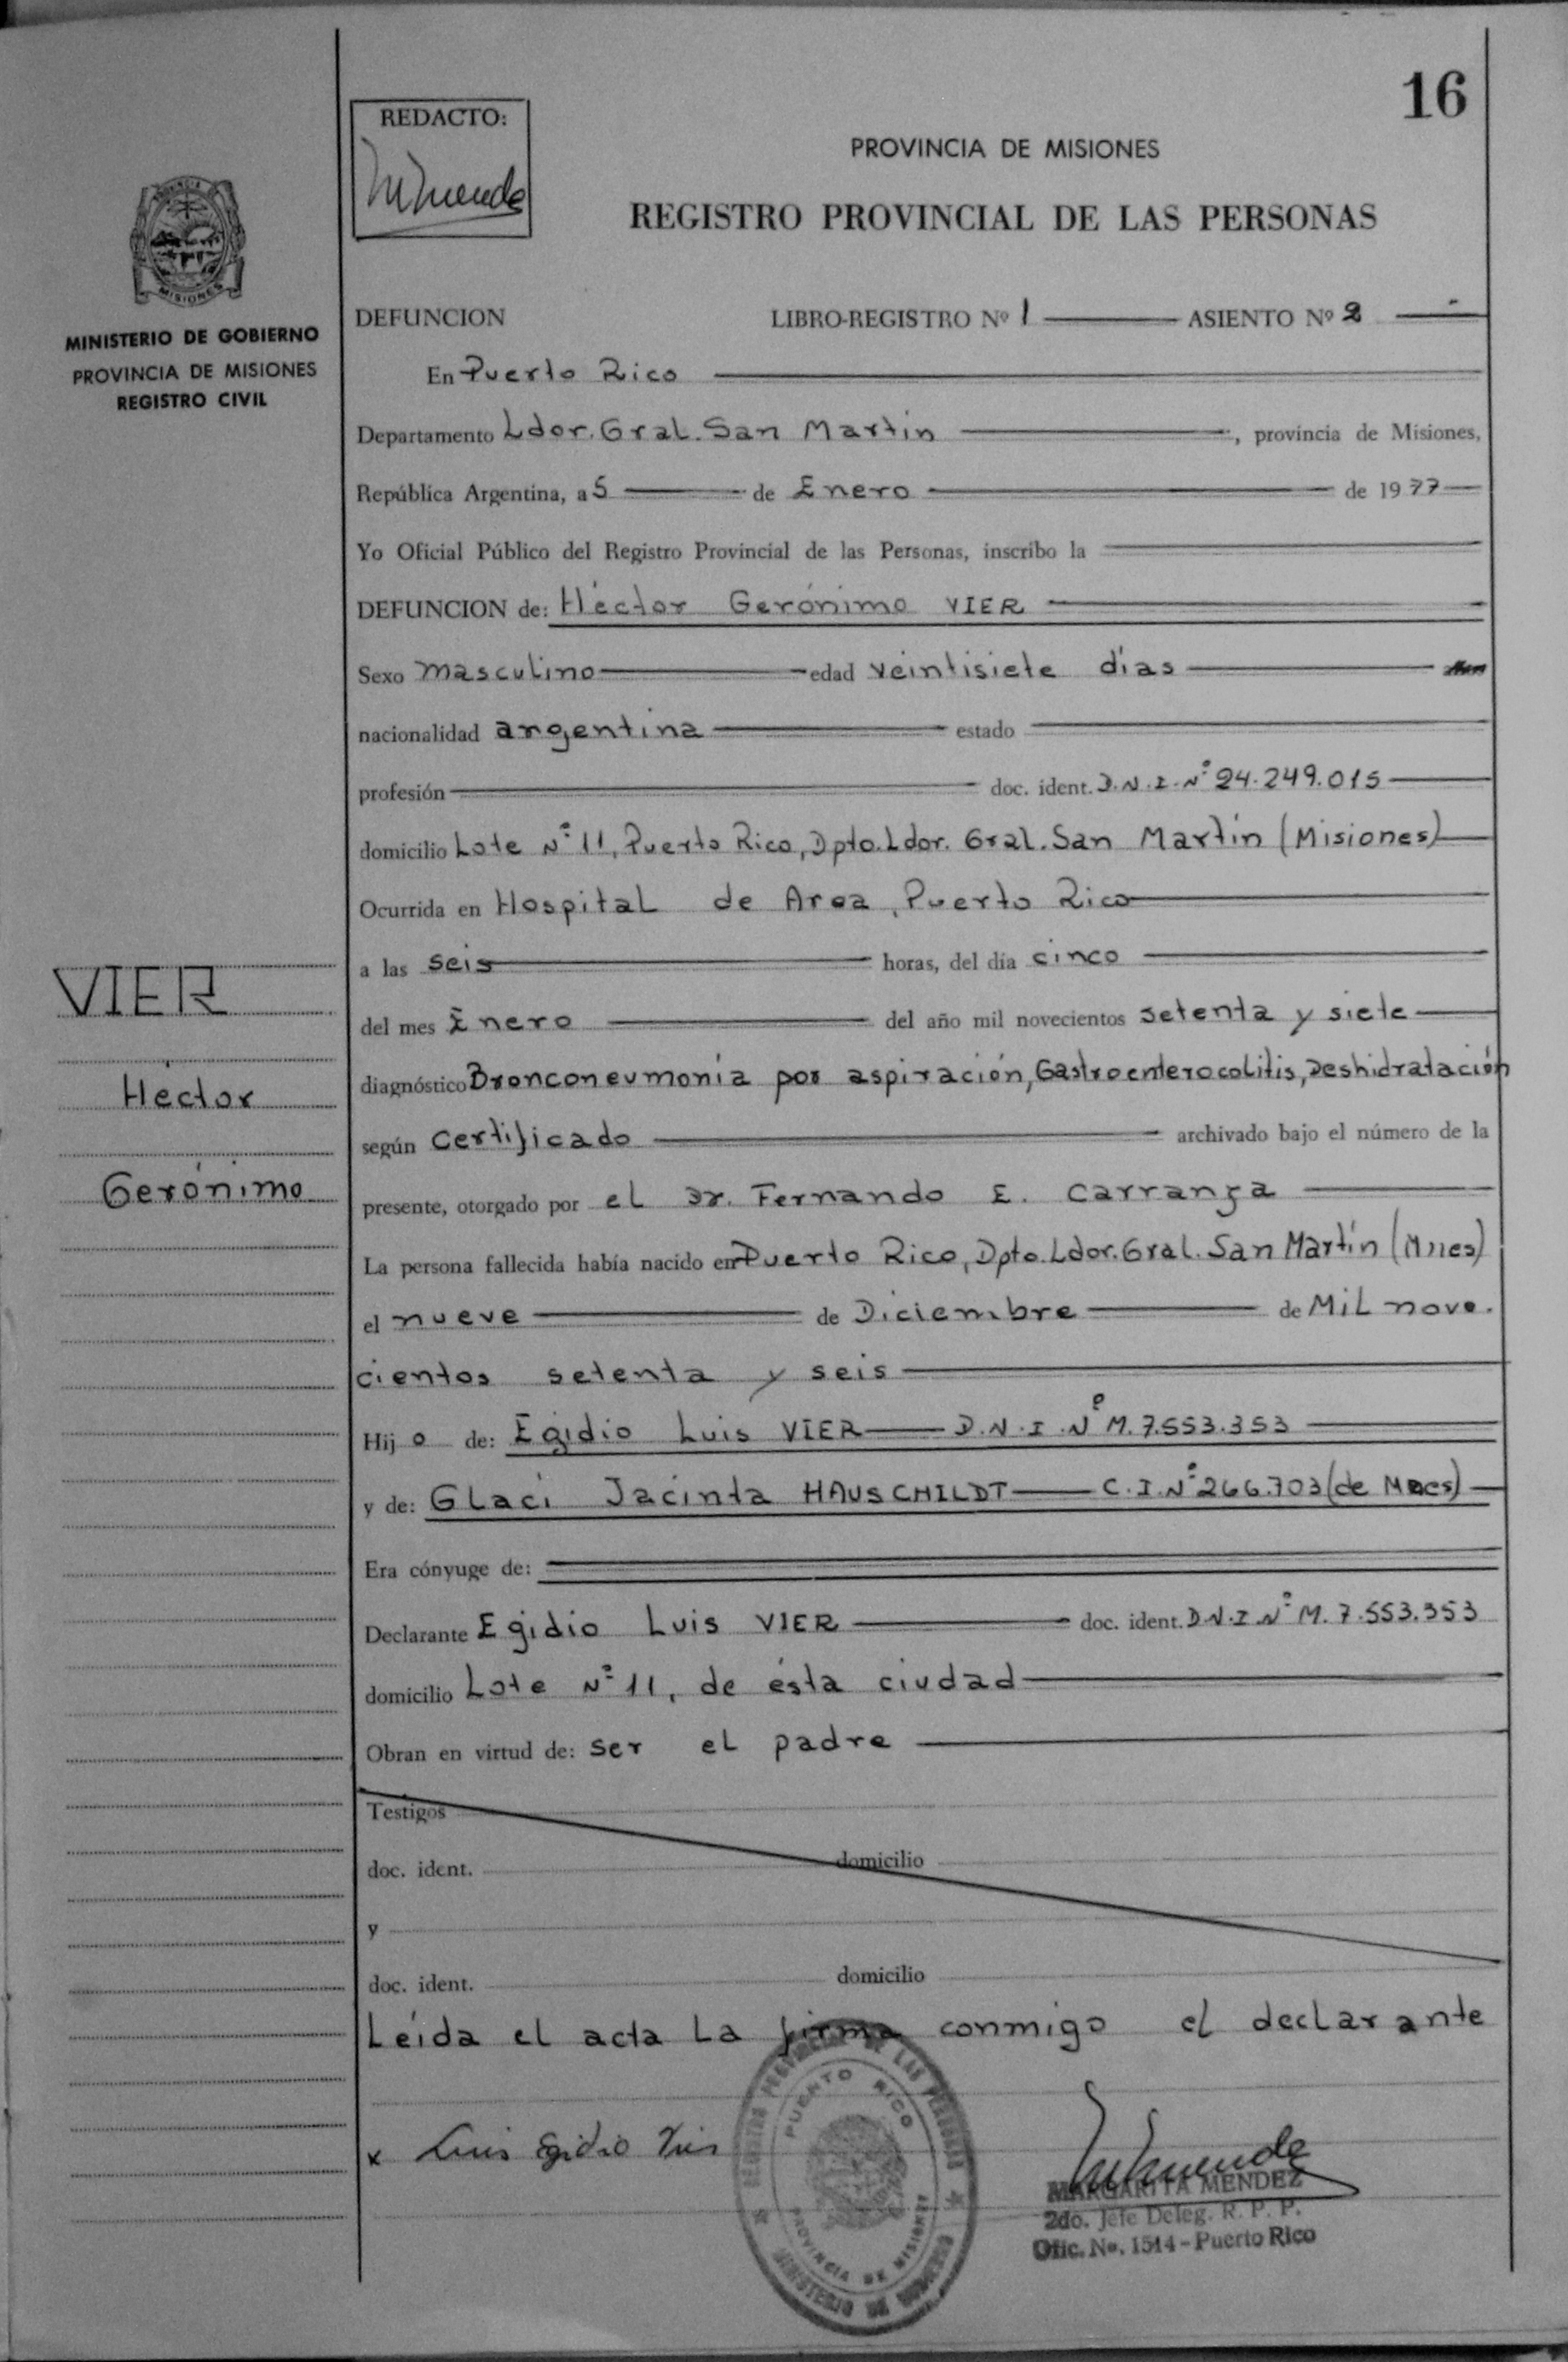 16
REDACTO:
PROVINCIA DE MISIONES
REGISTRO PROVINCIAL DE LAS PERSONAS
MISIONES
MINISTERIO DE GOBIERNO
PROVINCIA DE MISIONES
REGISTRO CIVIL
DEFUNCION LIBRO-REGISTRO Nº 1 ASIENTO Nº 2
En Puerto Rico
Departamento Ldor. Gral. San Martín, provincia de Misiones,
República Argentina, a 5 de Enero de 1977
Yo Oficial Público del Registro Provincial de las Personas, inscribo la
DEFUNCION de: Héctor Gerónimo VIER
Sexo masculino edad veintisiete días
nacionalidad argentina estado
profesión doc. ident. D.N.I. Nº 24.249.015
domicilio Lote Nº 11, Puerto Rico, Dpto. Ldor. Gral. San Martín (Misiones)
Ocurrida en Hospital de Area, Puerto Rico
a las seis horas, del día cinco
del mes Enero del año mil novecientos setenta y siete
diagnóstico Bronconeumonía por aspiración, Gastroenterocolitis, Deshidratación
según certificado archivado bajo el número de la
presente, otorgado por el Dr. Fernando E. Carranza
La persona fallecida había nacido en Puerto Rico, Dpto. Ldor. Gral. San Martín (Mnes)
el nueve de Diciembre de Mil nove.
cientos setenta y seis
Hijo de: Egidio Luis VIER D.N.I. Nº M. 7.553.353
y de: Glaci Jacinta HAUSCHILDT C.I. Nº 266.703 (de Mnes)
Era cónyuge de:
Declarante Egidio Luis VIER doc. ident. D.N.I. Nº M. 7.553.353
domicilio Lote Nº 11, de ésta ciudad
Obran en virtud de: ser el padre
Testigos
doc. ident. domicilio
y
doc. ident. domicilio
Leída el acta la firma conmigo el declarante
VIER
Héctor
Gerónimo
x Luis Egidio Vier
REGISTRO PROVINCIAL DE LAS PERSONAS
PUERTO RICO
PROVINCIA DE MISIONES
MINISTERIO DE GOBIERNO
MARGARITA MENDEZ
2do. Jefe Deleg. R. P. P.
Ofic. Nº. 1514 - Puerto Rico